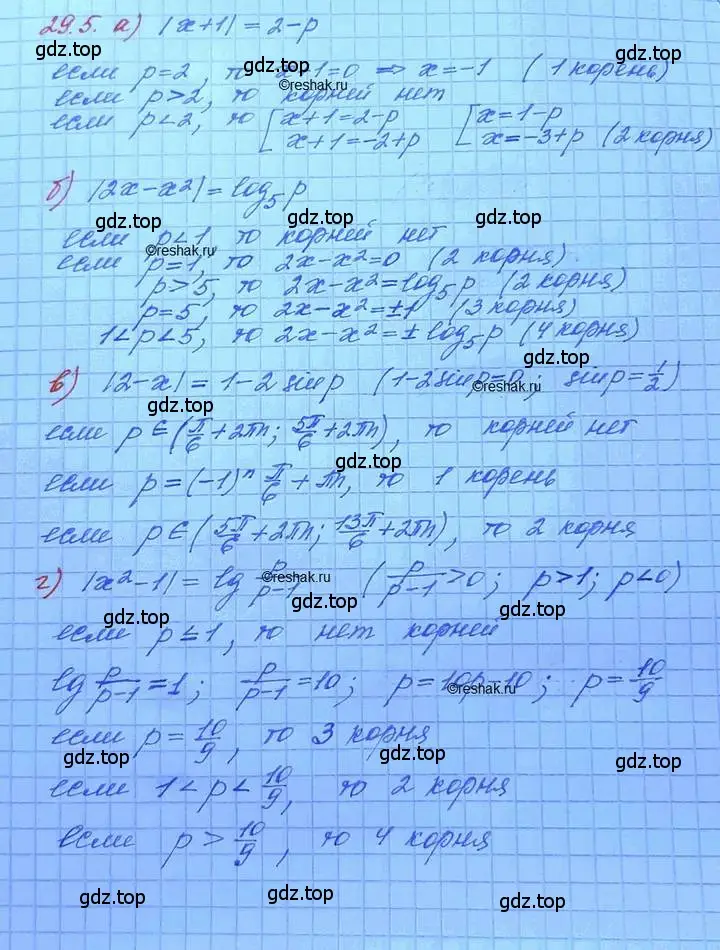 29.5. а) |x+1| = 2-p
gdz.top gdz.top
если p=2, то x+1=0 => x=-1 (1 корень)
©reshak.ru
если p>2, то корней нет
если p<2, то [x+1=2-p [x=1-p
x+1=-2+p x=-3+p (2 корня)
б) |2x-x²| = log₅p
gdz.top gdz.top
если p<1, то корней нет
©reshak.ru
если p=1, то 2x-x²=0 (2 корня)
p>5, то 2x-x²=log₅p (2 корня)
gdz.top gdz.top
p=5, то 2x-x²=±1 (3 корня)
1<p<5, то 2x-x²=± log₅p (4 корня)
в) |2-x| = 1-2sinp (1-2sinp=0; sinp=1/2)
gdz.top ©reshak.ru gdz.top
если p∈(π/6+2πn; 5π/6+2πn), то корней нет
gdz.top
если p=(-1)ⁿ π/6+πn, то 1 корень
если p∈(5π/6+2πn; 13π/6+2πn), то 2 корня
gdz.top gdz.top
г) |x²-1| = lg p/p-1 (p/p-1>0; p>1; p<0)
©reshak.ru
gdz.top gdz.top
если p≤1, то нет корней
lg p/p-1=1; p/p-1=10; p=10p-10; p=10/9
©reshak.ru
если p=10/9, то 3 корня
gdz.top gdz.top gdz.top
если 1<p<10/9, то 2 корня
если p>10/9, то 4 корня
gdz.top gdz.top gdz.top